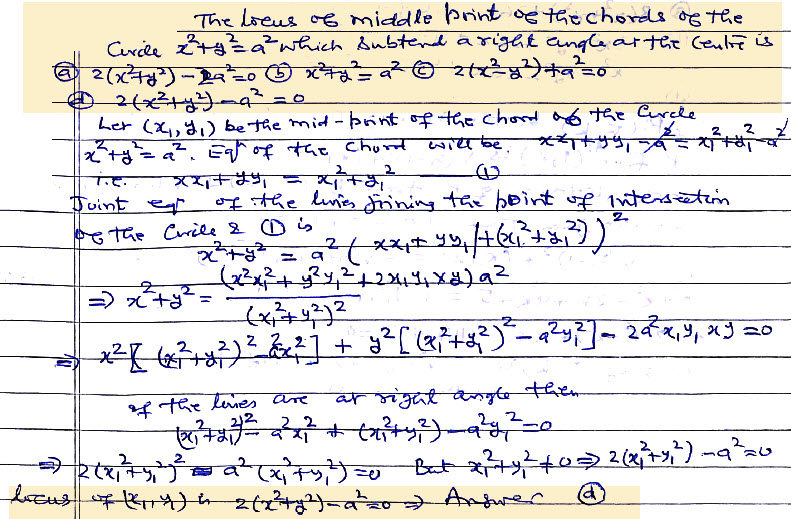 The locus of middle point of the chords of the
Circle x²+y²=a² which subtend a right angle at the centre is
(a) 2(x²+y²)-2a²=0 (b) x²+y²=a² (c) 2(x²-y²)+a²=0
(d) 2(x²+y²)-a²=0
Let (x₁,y₁) be the mid-point of the chord of the Circle
x²+y²=a². Eqⁿ of the chord will be. xx₁+yy₁-a²=x₁²+y₁²-a²
i.e. xx₁+yy₁ = x₁²+y₁² ——(1)
Joint eqⁿ of the lines joining the point of intersection
of the Circle & (1) is
x²+y² = a²(xx₁+yy₁/(x₁²+y₁²))²
⇒ x²+y² = (x²x₁²+y²y₁²+2x₁y₁xy)a² / (x₁²+y₁²)²
⇒ x²[(x₁²+y₁²)²-a²x₁²] + y²[(x₁²+y₁²)²-a²y₁²]-2a²x₁y₁xy=0
If the lines are at right angle then
(x₁²+y₁²)²-a²x₁²+(x₁²+y₁²)-a²y₁²=0
⇒ 2(x₁²+y₁²)²-a²(x₁²+y₁²)=0 But x₁²+y₁²≠0⇒2(x₁²+y₁²)-a²=0
locus of (x₁,y₁) is 2(x²+y²)-a²=0 ⇒ Answer (d)